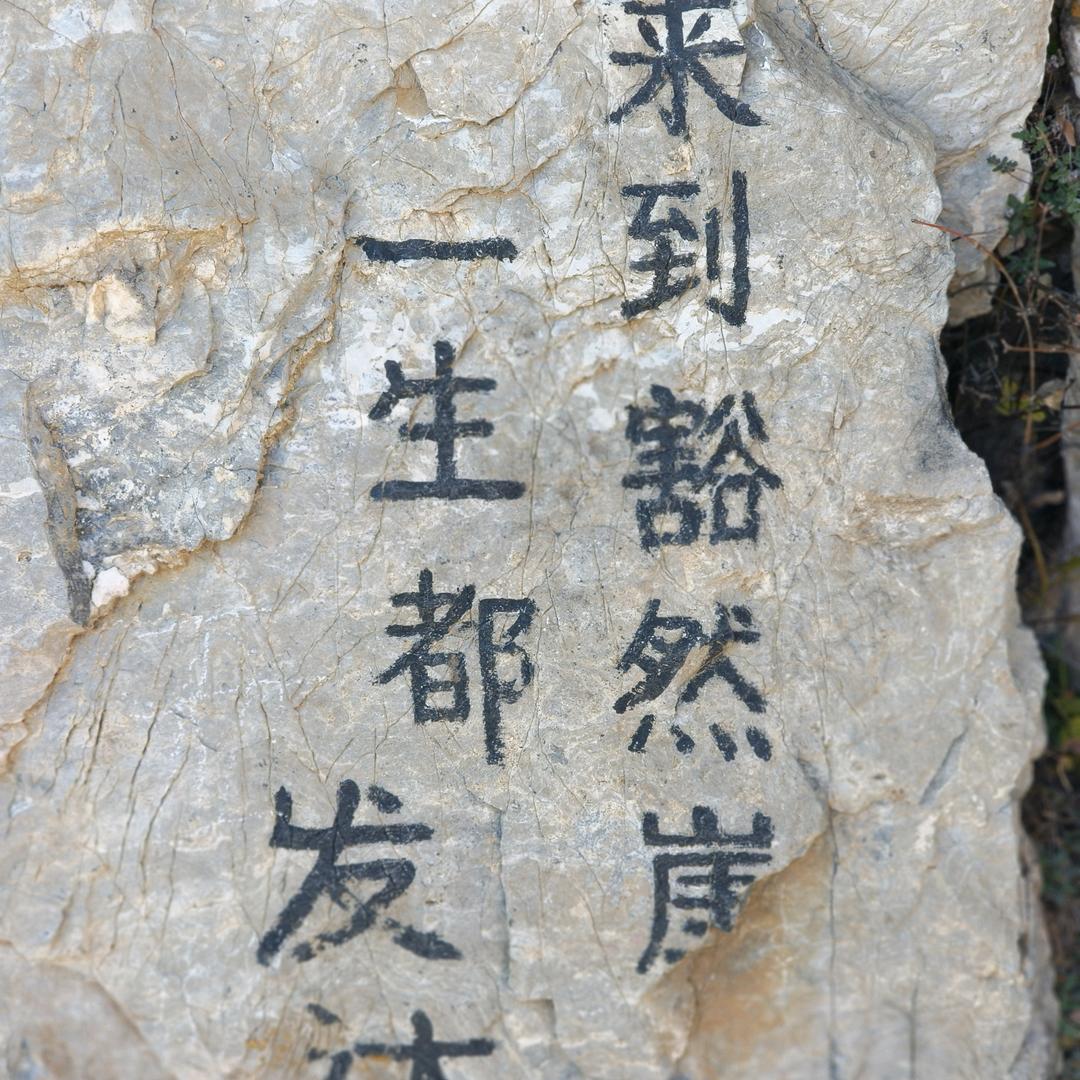 来到豁然崖
一生都发达